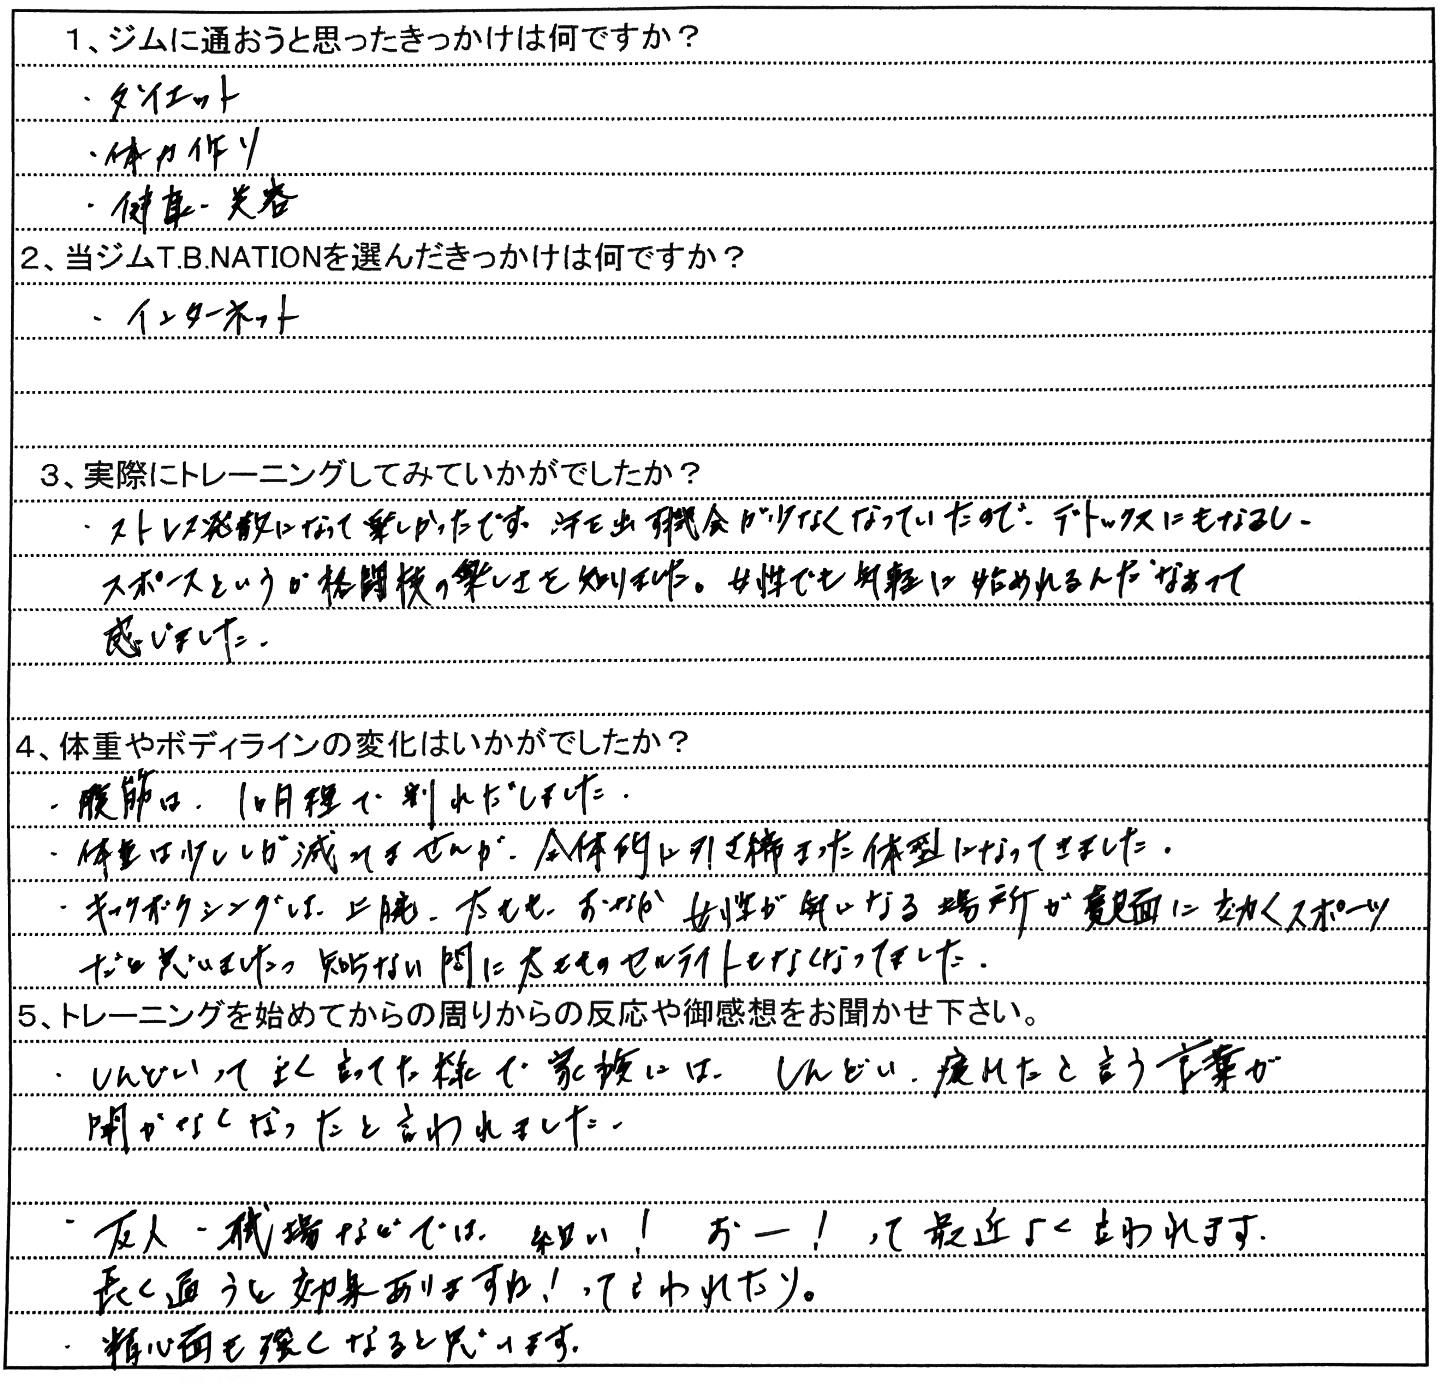 1、ジムに通おうと思ったきっかけは何ですか？
・ダイエット
・体力作り
・健康・美容
2、当ジムT.B.NATIONを選んだきっかけは何ですか？
・インターネット
3、実際にトレーニングしてみていかがでしたか？
・ストレス発散になって楽しかったです。汗を出す機会が少なくなっていたので、デトックスにもなるし、
スポースというか格闘技の楽しさを知りました。女性でも気軽に始めれるんだなあって
感じました。
4、体重やボディラインの変化はいかがでしたか？
・腹筋は、1ヶ月程で割れだしました。
・体重は少ししか減ってませんが、全体的に引き締まった体型になってきました。
・キックボクシングは、二の腕、太もも、おなか 女性が気になる場所が覿面に効くスポーツ
だと思いましたっ 知らない間に太もものセルライトもなくなってました。
5、トレーニングを始めてからの周りからの反応や御感想をお聞かせ下さい。
・しんどいって良く言ってた様で家族には、しんどい、疲れたと言う言葉が
聞かなくなったと言われました。
・友人・職場などでは、細い！ おー！って最近よく言われます。
長く通うと効果ありますね！って言われたり。
・精心面も強くなると思います。